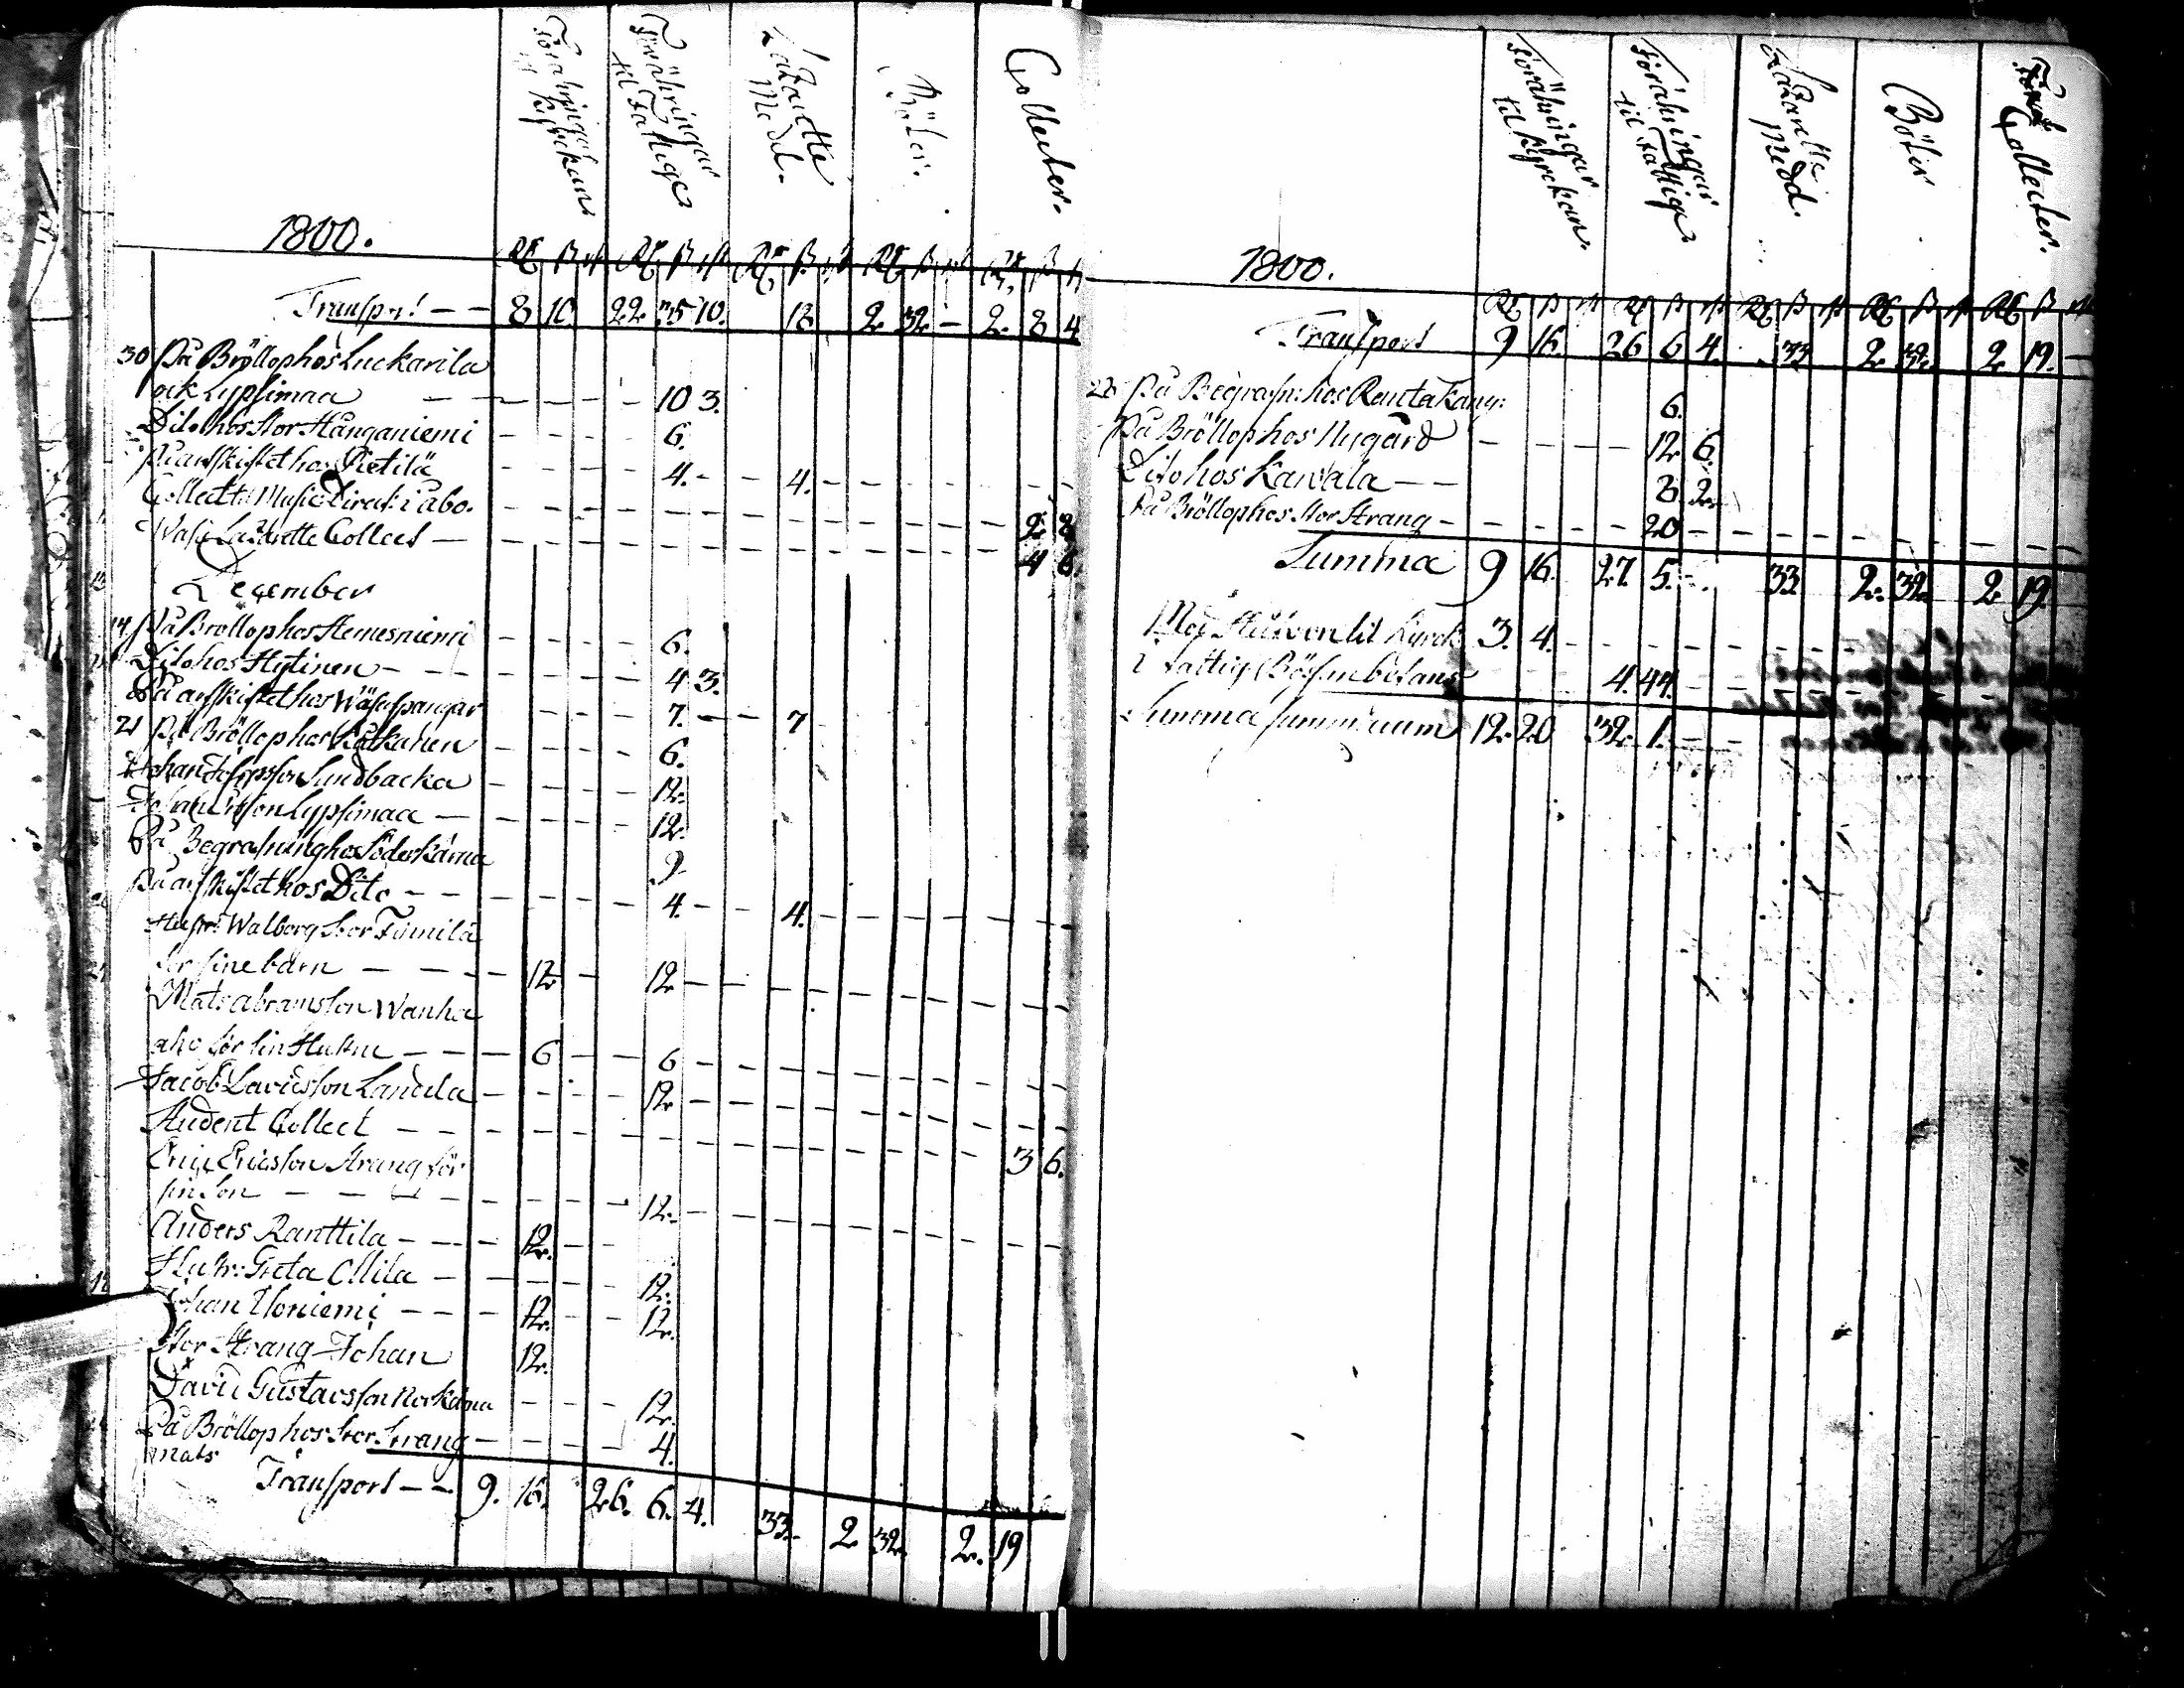 Förähringar til Kyrckan
Förähringar til Fattige
Lazarette Medel.
Böter.
Collecter.
1800.
Rd ß rst Rd ß rst Rd ß rst Rd ß rst Rd ß r
Transport — — 8 10. 22. 35 10. 18 2. 32 — 2. 8 4
30 På Bröllop hos Luckarila
ock Lypsimaa — — — — 10 3.
Dito hos Stor Hanganiemi — — — — 6.
På arfskiftet hos Pietilä — — — — 4. — — 4. — — — —
Collect til Music Direct: i Åbo. — — — — 2. 8
Wasa Lazarette Collect — — — — — 4 6.
December
14 På Bröllop hos Hemesniemi — — — — 6.
Dito hos Hytinen — — — — 4 3.
På arfskiftet hos Wäfuspangar — — — — 7. — — 7
21 På Bröllop hos Kätkänen — — — — 6.
Johan Josepsson Sundbacka — — — — 12.
Johan Lypsimaa — — — — 12.
På Begrafning hos Söderkårna 9
På arfskiftet hos Dito — — — — 4. — — 4. — — — —
Hustr: Walborg Stor Tümilä
för sine barn — — — — 12 — 12 — — — —
Mats Abramsson Wanha
aho för sin Hustru — — — 6 — — 6 — — — —
Jacob Davidsson Landila — — — — 12 — — — —
Student Collect — — — — — 3 6.
Eric Ericsson Strang för
sin Son — — — — 12. — — — —
Anders Ranttila — — — 12. — —
Hustr: Greta Ollila — — — — 12.
Johan Uloniemi — — — 12. — — 12.
Stor Strang Johan 12.
David Gustavsson Norkårna — — — 12.
På Bröllop hos Stor Strang — — — — 4.
Mats
Transport — — 9. 16. 26. 6. 4. 33. 2 32. 2. 19
Förähringar til Kyrckan.
Förähringar til Fattige
Lazarette Medd.
Böter
Collecter.
1800.
Rd ß rst Rd ß rst Rd ß rst Rd ß rst Rd ß rst
Transport 9 16. 26 6 4. 33 2. 32. 2 19. —
På Begrafn: hos Rantakang: 6.
På Bröllop hos Nygård — — — — 12 6.
Dito hos Kawala — — 8. 2.
På Bröllop hos Stor Strang — — — — — 20 — — — —
Summa 9 16. 27. 5. — 33 2. 32. 2 19.
Med Håfven til Kyrck 3. 4. — — — —
i Fattig Bössan befans 4. 44. — — — —
Summa summarum 12. 20 32. 1. — —